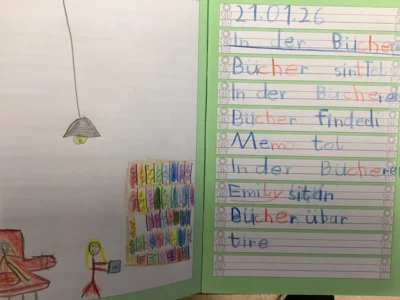 21.01.26
In der Bücher
Bücher sint tol
In der Bücherei
Bücher finded
Memo tol
In der Bücherei
Emily sitdn
Bücher übar
tire